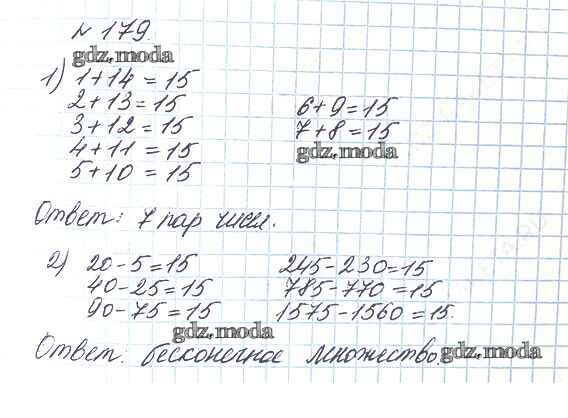 № 179.
gdz.moda
1) 1+14 = 15
2+13=15
3+12=15
4+11 = 15
5+10 = 15
6+9=15
7+8=15
gdz.moda
Ответ: 7 пар чисел.
2) 20-5=15
40-25=15
90-75=15
245-230=15
785-770=15
1575-1560=15.
gdz.moda
Ответ: бесконечное множество.
gdz.moda